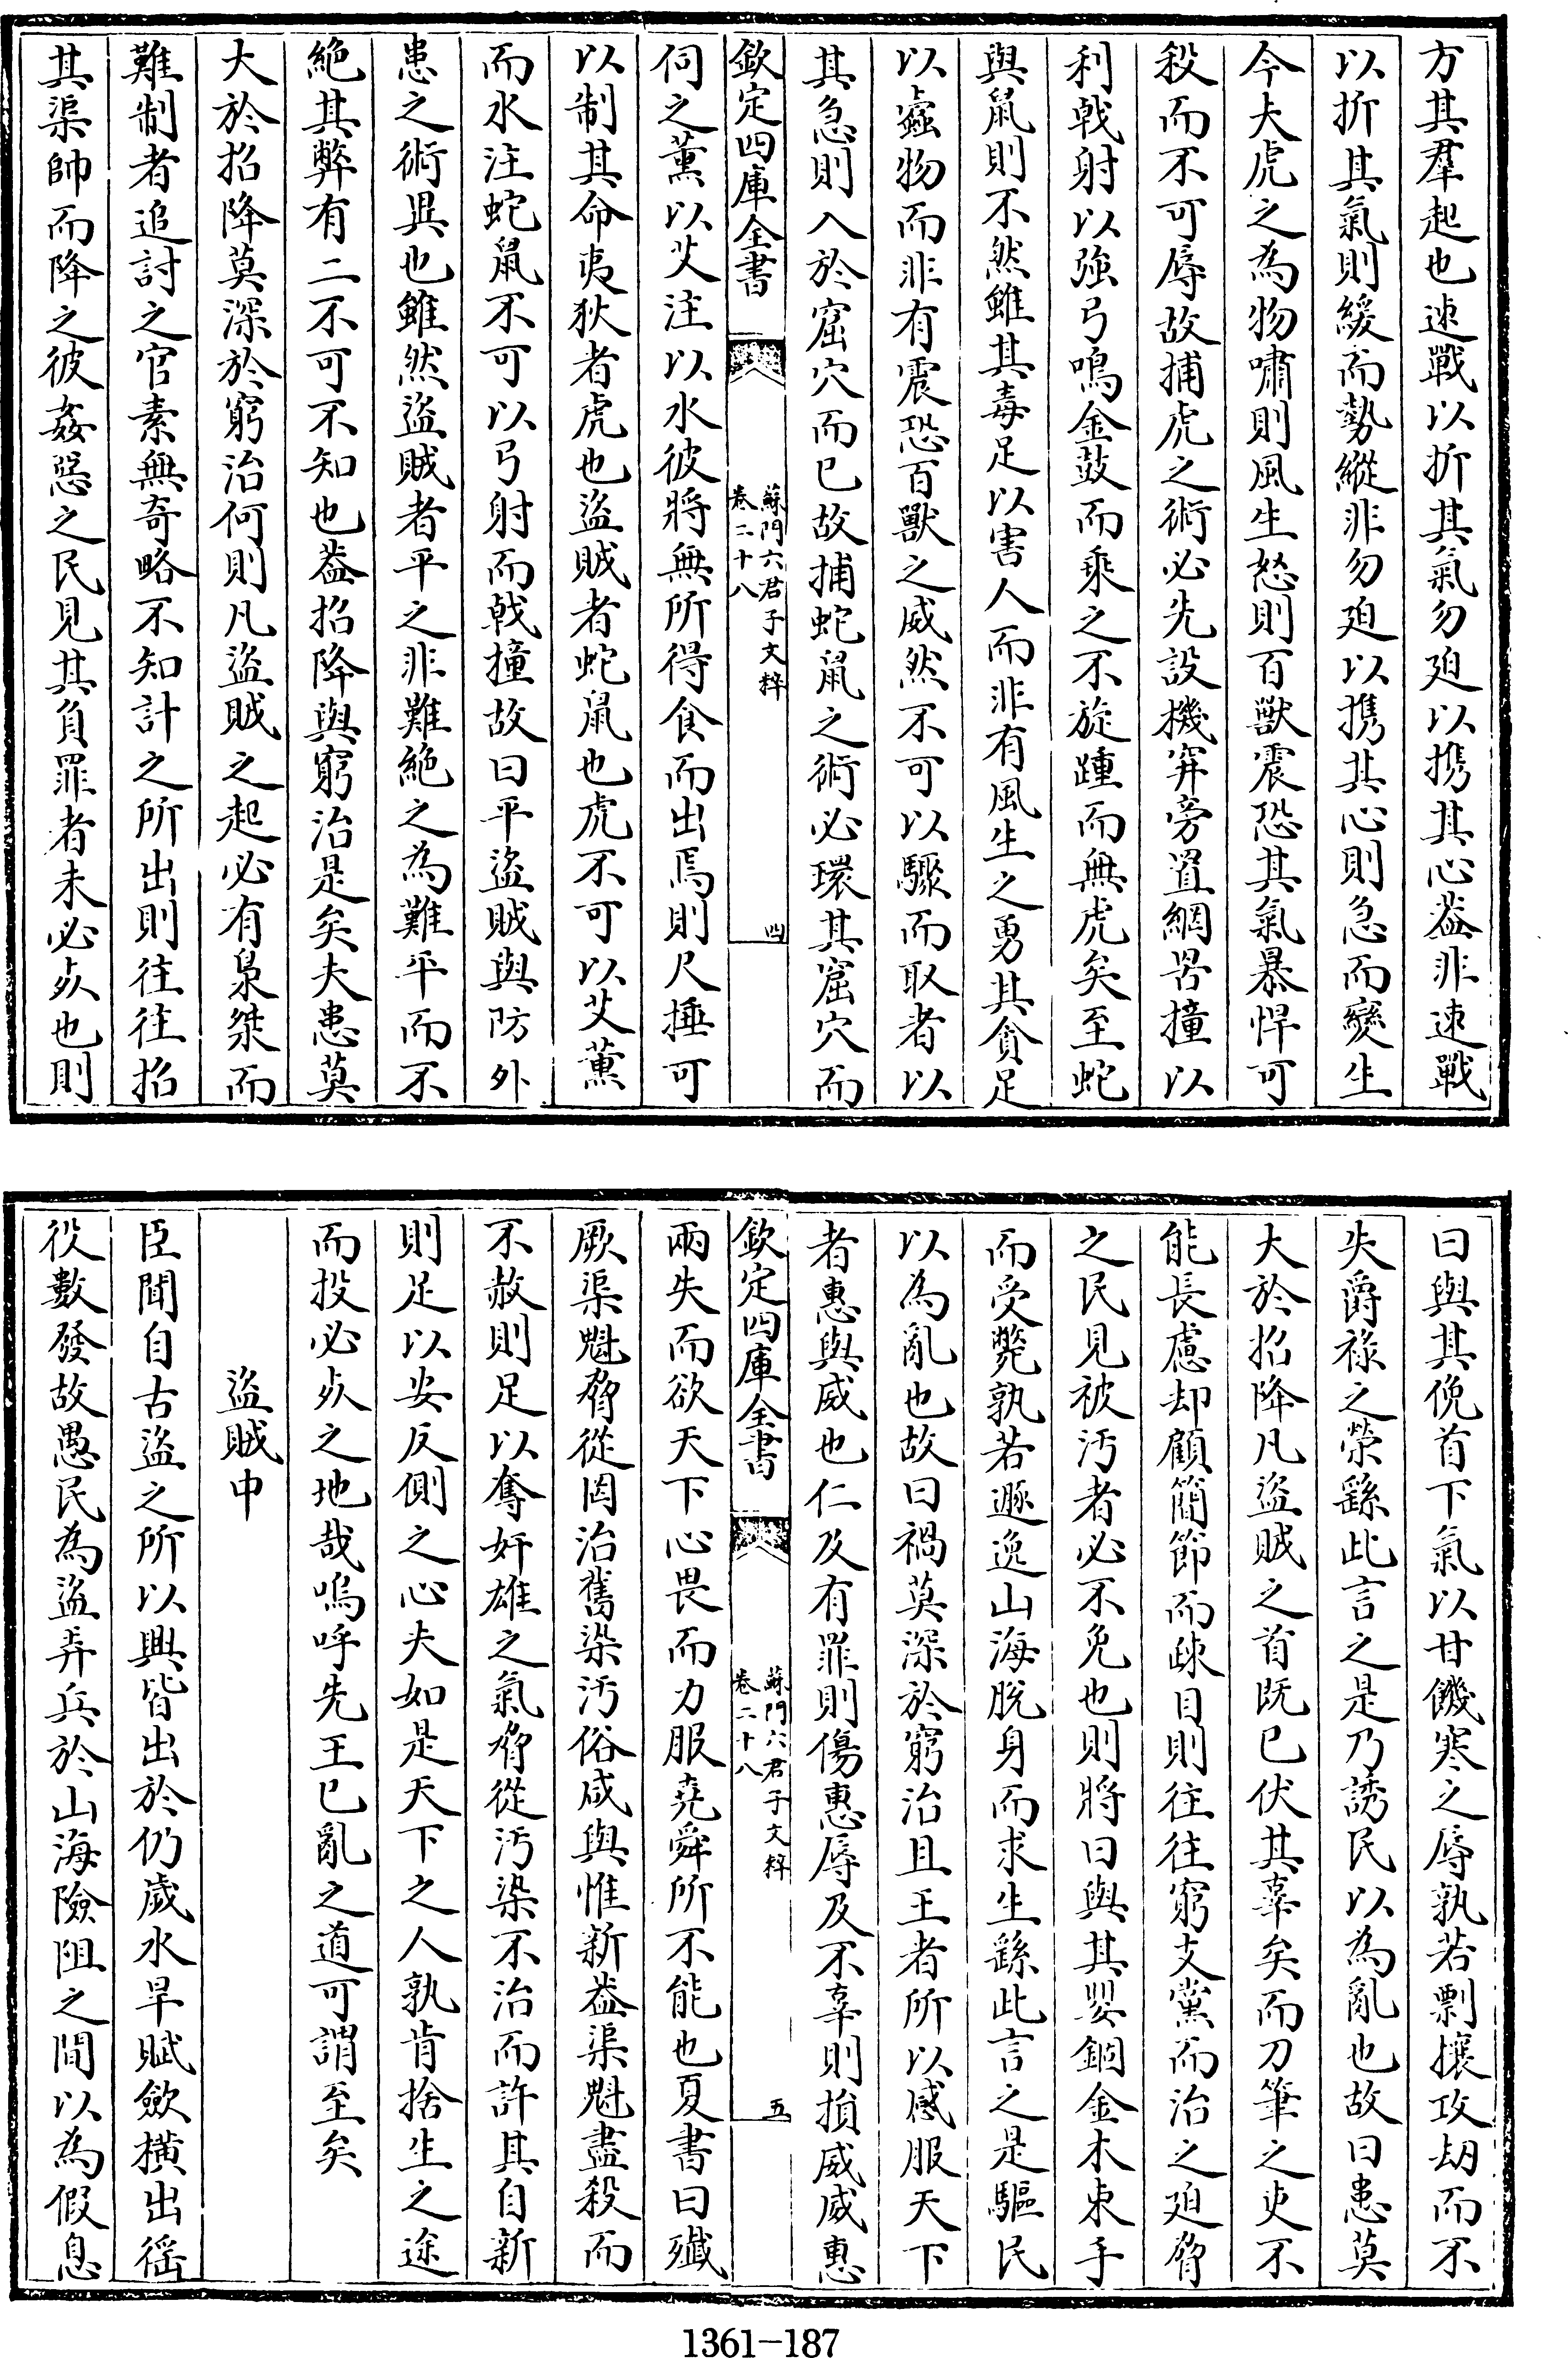 方其羣起也速戰以折其氣勿廹以携其心葢非速戰
以折其氣則緩而勢縱非勿廹以携其心則急而變生
今夫虎之為物嘯則風生怒則百獸震恐其氣暴悍可
殺而不可辱故捕虎之術必先設機穽旁置網罟撞以
利㦸射以強弓鳴金鼓而乘之不旋踵而無虎矣至蛇
與鼠則不然雖其毒足以害人而非有風生之勇其貪足
以蠧物而非有震恐百獸之威然不可以驟而取者以
其急則入於窟穴而已故捕蛇鼠之術必環其窟穴而
欽定四庫全書
蘇門六君子文粹
卷二十八
四
伺之薰以艾注以水彼將無所得食而出焉則尺捶可
以制其命夷狄者虎也盜賊者蛇鼠也虎不可以艾薰
而水注蛇鼠不可以弓射而㦸撞故曰平盜賊與防外
患之術異也雖然盜賊者平之非難絶之為難平而不
絶其弊有二不可不知也葢招降與窮治是矣夫患莫
大於招降莫深於窮治何則凡盜賊之起必有梟桀而
難制者追討之官素無奇略不知計之所出則往往招
其渠帥而降之彼姦惡之民見其負罪者未必㱔也則
曰與其俛首下氣以甘饑寒之辱孰若剽攘攻刼而不
失爵祿之榮繇此言之是乃誘民以為亂也故曰患莫
大於招降凡盜賊之首既已伏其辜矣而刀筆之吏不
能長慮却顧簡節而疎目則往往窮支黨而治之廹脅
之民見被汚者必不免也則將曰與其嬰錮金木束手
而受斃孰若遯逸山海脫身而求生繇此言之是驅民
以為亂也故曰禍莫深於窮治且王者所以感服天下
者惠與威也仁及有罪則傷惠辱及不辜則損威威惠
欽定四庫全書
蘇門六君子文粹
卷二十八
五
兩失而欲天下心畏而力服堯舜所不能也夏書曰殲
厥渠魁脅從罔治舊染汚俗咸與惟新葢渠魁盡殺而
不赦則足以奪奸雄之氣脅從汚染不治而許其自新
則足以安反側之心夫如是天下之人孰肯捨生之途
而投必㱔之地哉嗚呼先王已亂之道可謂至矣
盜賊中
臣聞自古盜之所以興皆出於仍歲水旱賦歛橫出徭
役數發故愚民為盜弄兵於山海險阻之間以為假息
1361-187